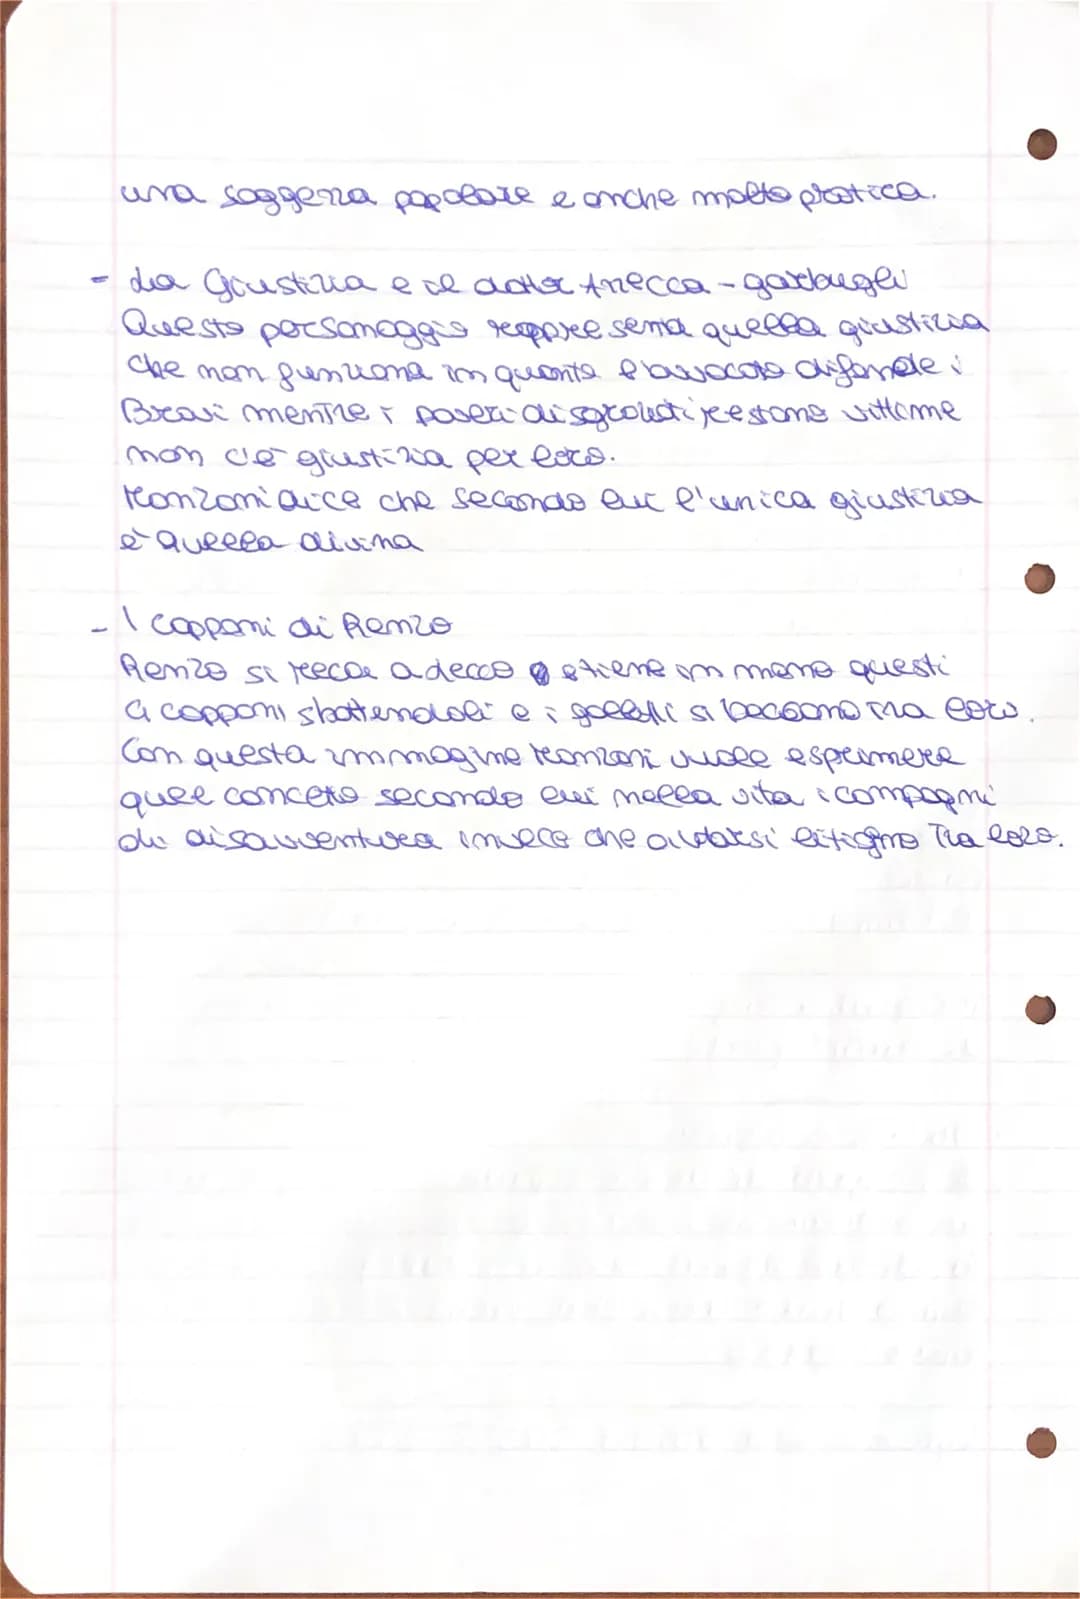 una saggezza popolare e anche molto pratica.
- La Giustizia e il dottor Azzecca-garbugli
Questo personaggio rappresenta quella giustizia
che non funziona in quanto l'avvocato difende i
Bravi mentre i poveri disgraziati restano vittime
non c'è giustizia per loro.
Manzoni dice che secondo lui l'unica giustizia
è quella divina
- I capponi di Renzo
Renzo si reca a Lecco e tiene in mano questi
4 capponi sbattendoli e i galletti si beccano tra loro.
Con questa immagine Manzoni vuole esprimere
quel conceto secondo lui nella vita i compagni
di disavventura invece che aiutarsi litigano tra loro.